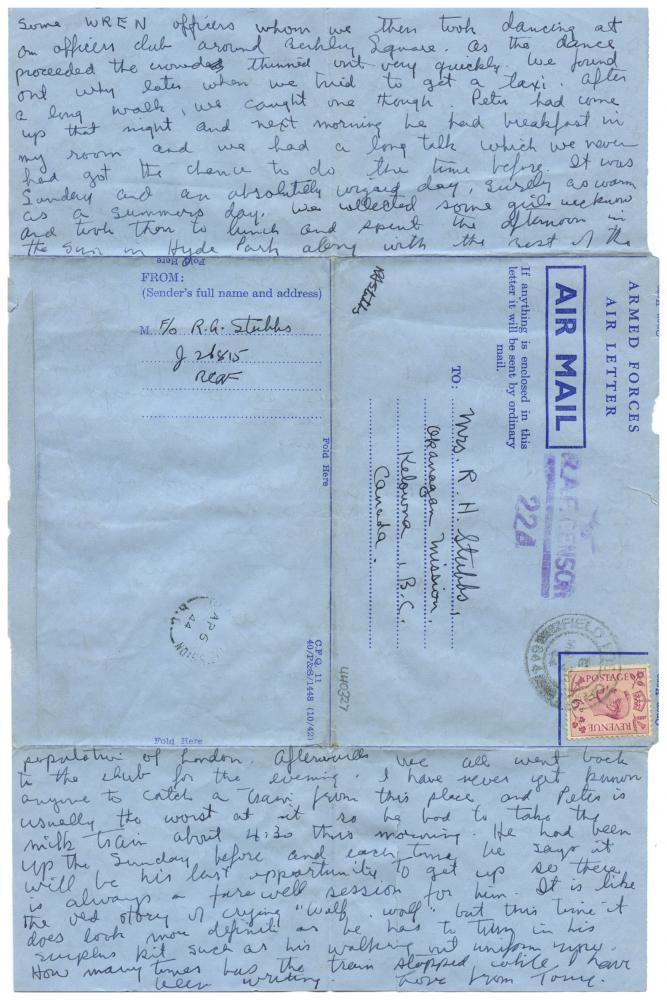 Some WREN officers whom we then took dancing at
an officers club around Berkley Square. As the dance
proceeded the crowded thinned out very quickly. We found
out why later when we tried to get a taxi. After
a long walk, we caught one though. Peter had come
up that night and next morning he had breakfast in
my room and we had a long talk which we never
had got the chance to do the time before. It was
Sunday and an absolutely wizard day, surely as warm
as a summers day. We collected some girls we know
and took them to lunch and spent the afternoon in
the sun in Hyde Park along with the rest of the
Fold Here
FROM:
(Sender's full name and address)
M. F/O R.A. Stubbs
J 26815
RCAF
Fold Here
AP 5
44
B.C.
C.F.Q. 11
40/P&S/1448 (10/42)
Fold Here
ARMED FORCES
AIR LETTER
AIR MAIL
If anything is enclosed in this
letter it will be sent by ordinary
mail.
R.A.F. CENSOR
224
RAStubbs
TO:
Mrs. R. H. Stubbs,
Okanagan Mission,
Kelowna, B.C.
Canada.
440327
FIELD
POSTAGE
REVENUE
population of London. Afterwards we all went back
to the club for the evening. I have never yet known
anyone to catch a train from this place and Peter is
usually the worst at it so he had to take the
milk train about 4:30 this morning. He had been
up the Sunday before and each time he says it
will be his last opportunity to get up so there
is always a farewell session for him. It is like
the old story of crying "Wolf, wolf" but this time it
does look more definite as he has to turn in his
surplus kit such as his walking out uniform now.
How many times has the train stopped while I have
been writing. Love from Tony.